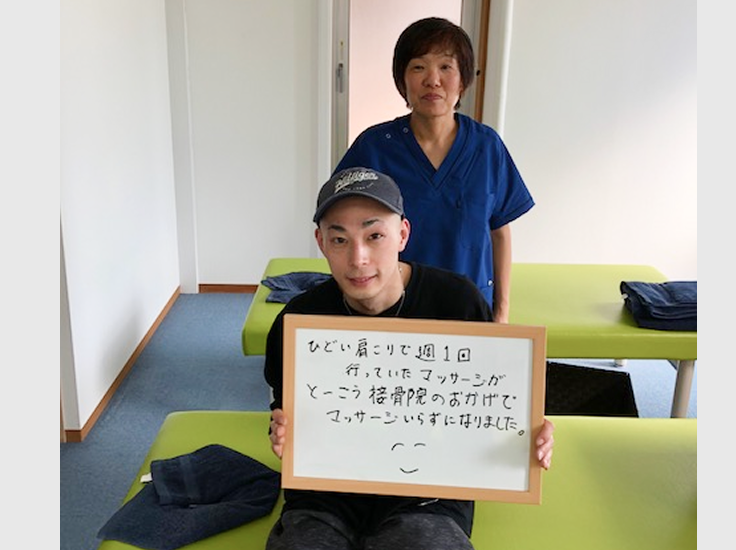 ひどい肩こりで週1回
行っていたマッサージが
とーこう接骨院のおかげで
マッサージいらずになりました。